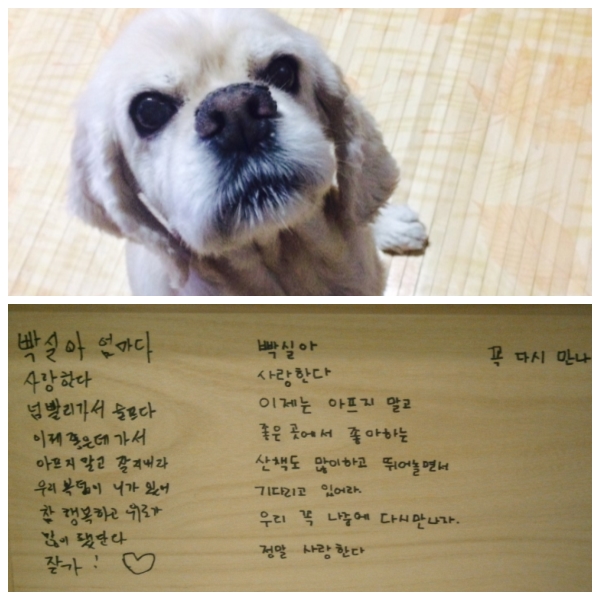 빡실아 엄마다
사랑한다
넘 빨리가서 슬프다
이제 좋은데 가서
아프지 말고 잘 지내라
우리 복덩이 니가 있어
참 행복하고 위로가
많이 됐단다
잘가!
빡실아
사랑한다
이제는 아프지 말고
좋은 곳에서 좋아하는
산책도 많이하고 뛰어놀면서
기다리고 있어라.
우리 꼭 나중에 다시만나자.
정말 사랑한다
꼭 다시 만나